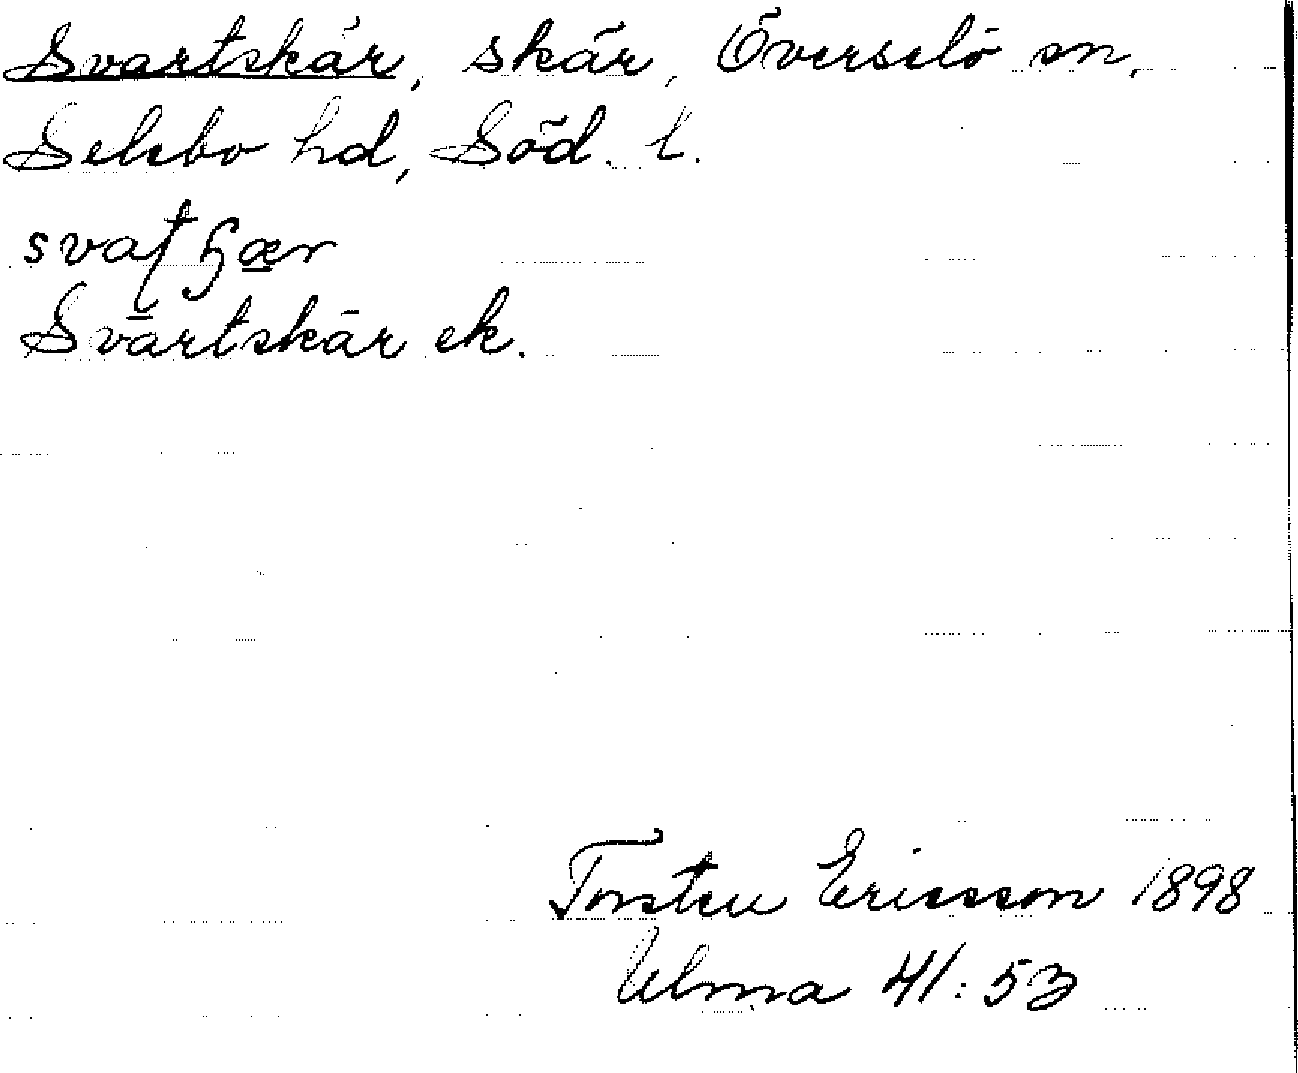 Svartskär, skär, Överselö sn,
Selebo hd, Söd. l.
Svartskär ek.
Torsten Ericsson 1898
Ulma 41:53